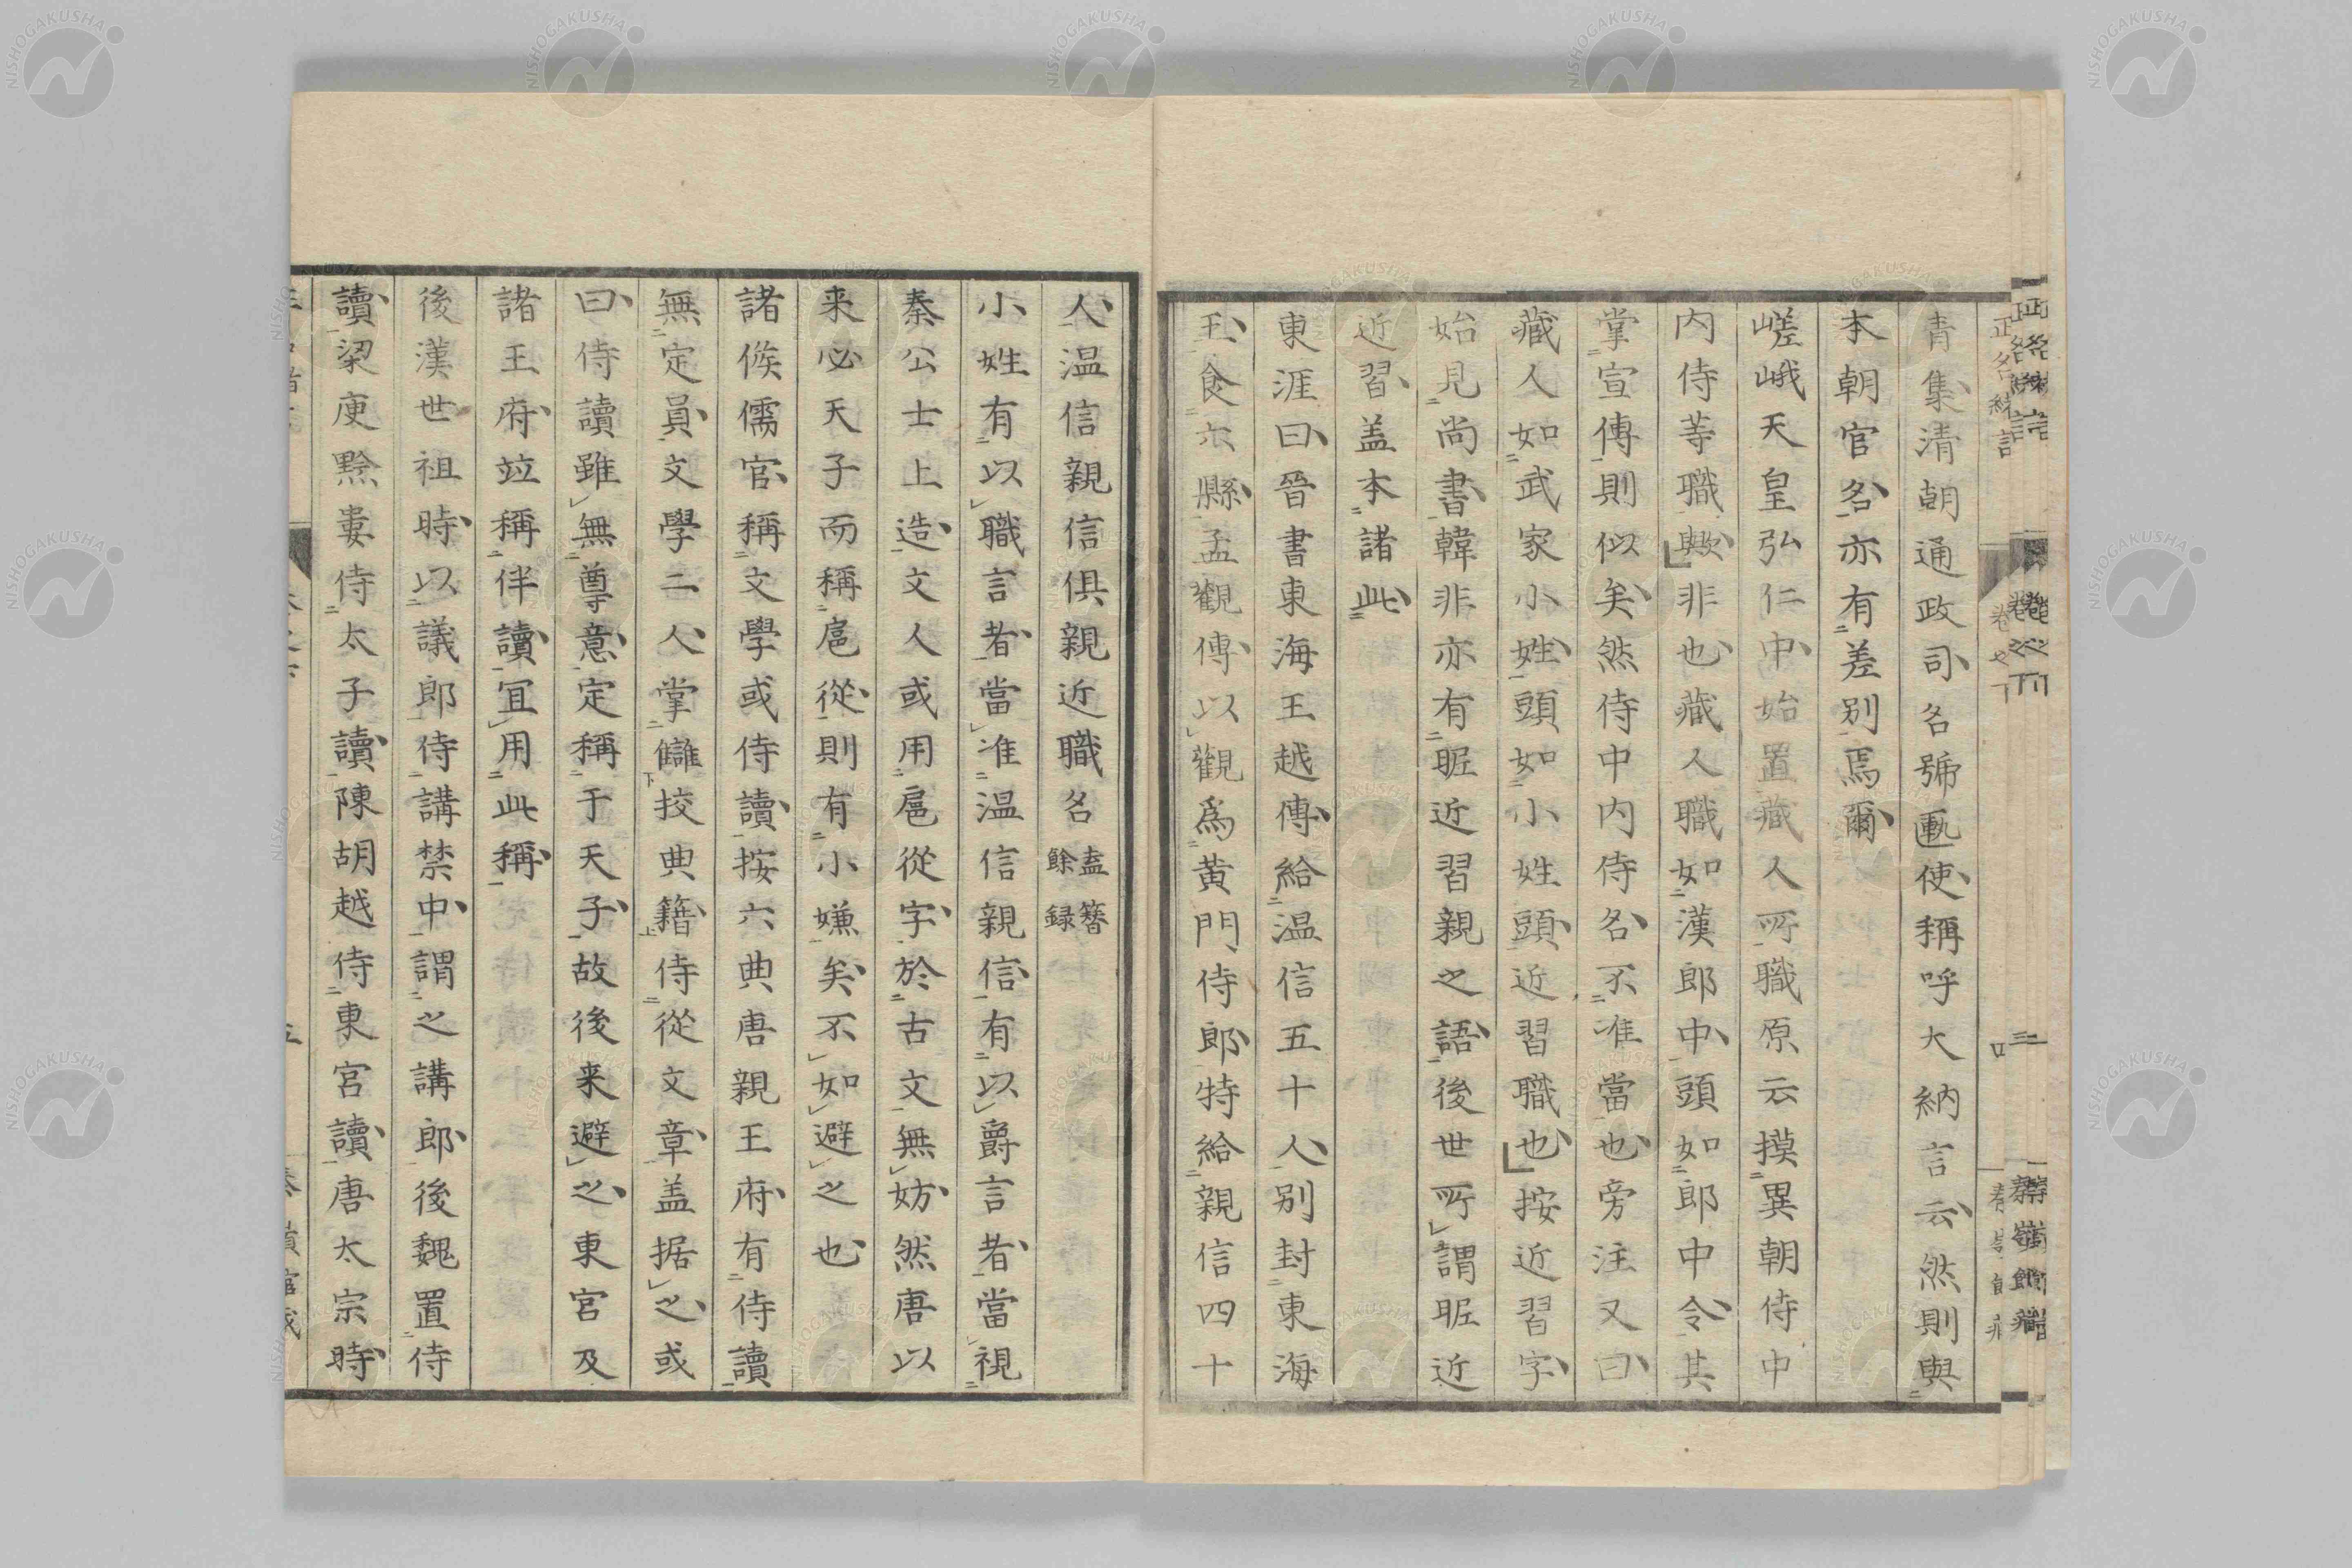 青集清朝通政司名號匭使稱呼大納言云然則與
本朝官名亦有差別焉爾
嵯峨天皇弘仁中始置藏人所職原云摸異朝侍中
内侍等職歟非也藏人職如漢郎中頭如郎中令其
掌宣傳則似矣然侍中内侍名不准當也旁注又曰
藏人如武家小姓頭如小姓頭近習職也按近習字
始見尚書韓非亦有昵近習親之語後世所謂昵近
近習盖本諸此
東涯曰晉書東海王越傳給温信五十人別封東海
王食六縣孟觀傳以觀爲黄門侍郎特給親信四十
人温信親信俱親近職名盍簪餘録
小姓有以職言者當准温信親信有以爵言者當視
秦公士上造文人或用扈從字於古文無妨然唐以
来必天子而稱扈從則有小嫌矣不如避之也
諸侯儒官稱文學或侍讀按六典唐親王府有侍讀
無定員文學二人掌讎挍典籍侍從文章盖据之或
曰侍讀雖無尊意定稱于天子故後来避之東宮及
諸王府竝稱伴讀宜用此稱
後漢世祖時以議郎侍講禁中謂之講郎後魏置侍
讀梁庾黔婁侍太子讀陳胡越侍東宮讀唐太宗時